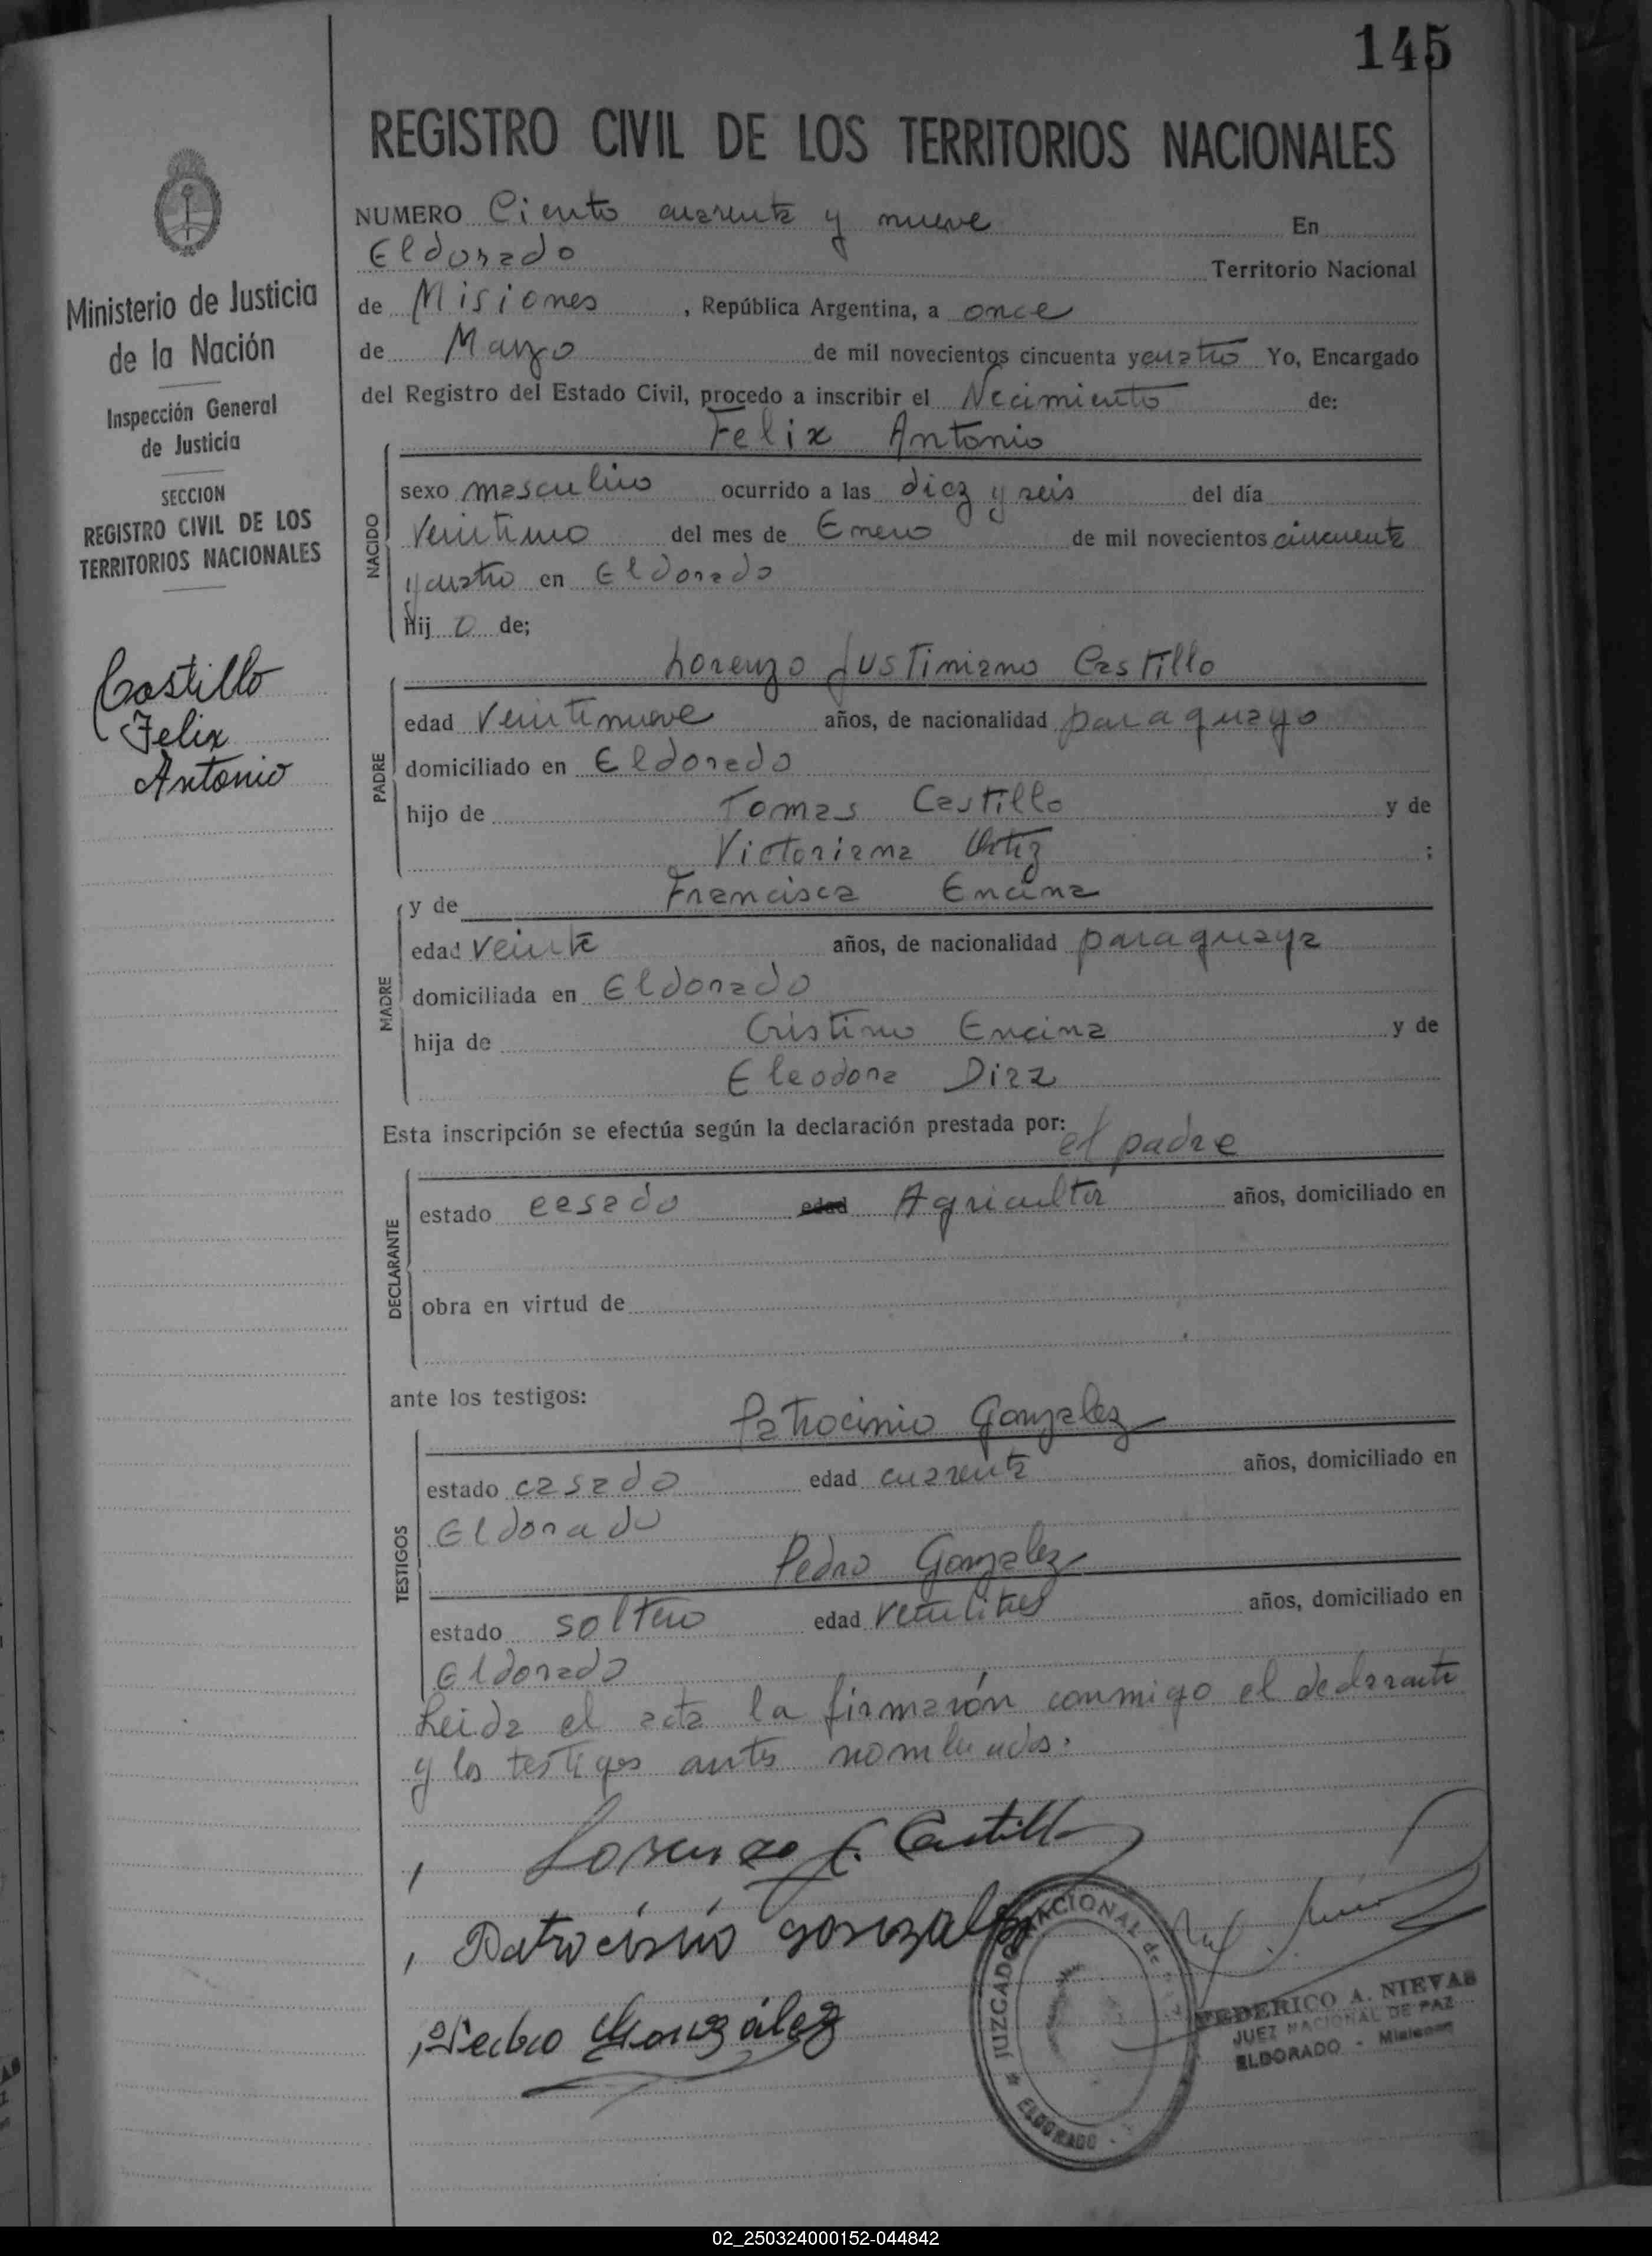 145
REGISTRO CIVIL DE LOS TERRITORIOS NACIONALES
Ministerio de Justicia
de la Nación
Inspección General
de Justicia
SECCION
REGISTRO CIVIL DE LOS
TERRITORIOS NACIONALES
Castillo
Felix
Antonio
NUMERO Ciento cuarenta y nueve En
Eldorado Territorio Nacional
de Misiones, República Argentina, a once
de Marzo de mil novecientos cincuenta y cuatro Yo, Encargado
del Registro del Estado Civil, procedo a inscribir el Nacimiento de:
Felix Antonio
NACIDO
sexo masculino ocurrido a las diez y seis del día
del mes de Enero de mil novecientos cincuenta
y cuatro en Eldorado
Hij o de;
Lorenzo Justiniano Castillo
PADRE
edad veintinueve años, de nacionalidad paraguayo
domiciliado en Eldorado
hijo de Tomas Castillo y de
Victoriana Ortiz ;
y de Francisca Encina
MADRE
edad veinte años, de nacionalidad paraguaya
domiciliada en Eldorado
hija de Cristino Encina y de
Eleodora Diaz
Esta inscripción se efectúa según la declaración prestada por: el padre
DECLARANTE
estado casado edad Agricultor años, domiciliado en
obra en virtud de
ante los testigos:
Patrocinio Gonzalez
TESTIGOS
estado casado edad cuarenta años, domiciliado en
Eldorado
Pedro Gonzalez
estado soltero edad veintitres años, domiciliado en
Eldorado
Leida el acta la firmarón conmigo el declarante
y los testigos antes nombrados.
Lorenzo J. Castillo
Patrocinio gonzalez
Pedro González
JUZGADO NACIONAL de
ELDORADO
FEDERICO A. NIEVAS
JUEZ NACIONAL DE PAZ
ELDORADO - Misiones
02_250324000152-044842